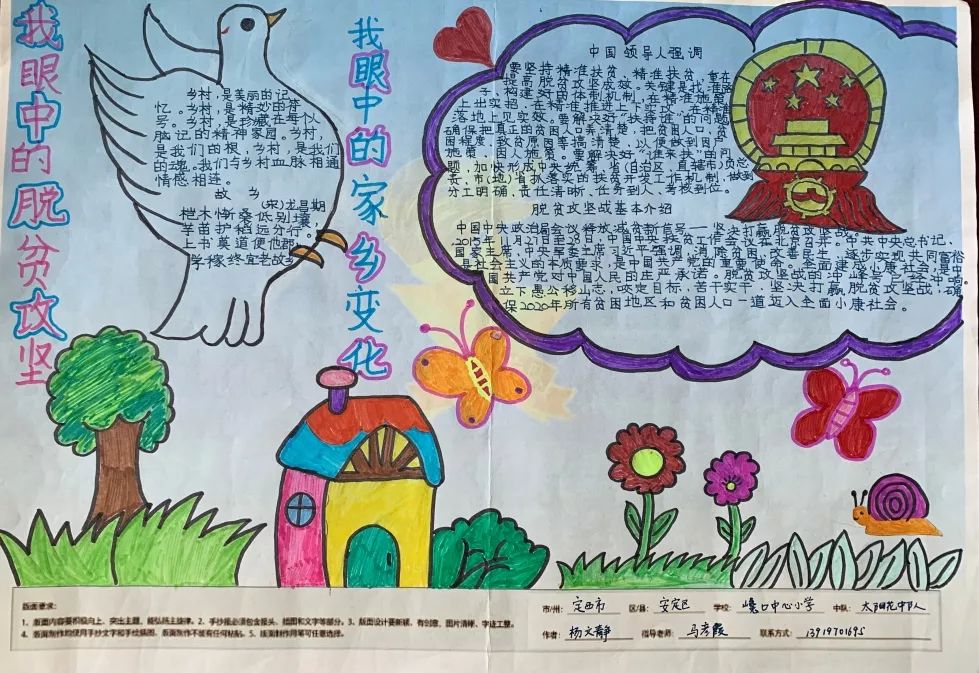 我眼中的脱贫攻坚
我眼中的家乡变化
乡村，是美丽的记
忆。乡村，是精妙的符
号。乡村，是珍藏在每个人
脑记的精神家园。乡村，
是我们的根，乡村，是我们
的魂。我们与乡村血脉相通
情感相连。
故 乡
(宋)龙昌期
桤木惭桑低别壤，
芋苗护稻远分行，
上书莫道便他郡，
学稼终宜老故乡
中国领导人强调
要坚持精准扶贫、精准脱贫，重在
提高脱贫攻坚成效。关键是找准路
子、构建好的体制机制，在精准施策
上出实招、在精准推进上下实功、在精准
落地上见实效。要解决好"扶持谁"的问题
确保把真正的贫困人口弄清楚，把贫困人口、贫
困程度、致贫原因等搞清楚，以便做到因户
施策、因人施策。要解决好"谁来扶"的问
题，加快形成中央统筹、省(自治区、直辖市)负总
责、市(地)县抓落实的扶贫开发工作机制，做到
分工明确、责任清晰、任务到人、考核到位。
脱贫攻坚战基本介绍
中国中央政治局会议释放减贫新信号——坚决打赢脱贫攻坚战。
2015年11月27日至28日，中国中央扶贫工作会议在北京召开。中共中央总书记、
国家主席、中央军委主席习近平强调，消除贫困、改善民生、逐步实现共同富裕
是社会主义的本质要求，是中国共产党的重要使命。全面建成小康社会，是中
国共产党对中国人民的庄严承诺。脱贫攻坚战的冲锋号已经吹响。
立下愚公移山志，咬定目标、苦干实干，坚决打赢脱贫攻坚战，确
保2020年所有贫困地区和贫困人口一道迈入全面小康社会。
版面要求：
1、版面内容要积极向上、突出主题，能弘扬主旋律。2、手抄报必须包含报头、插图和文字等部分。3、版面设计要新颖、有创意、图片清晰、字迹工整。
4、各版面制作均使用手抄文字和手绘插图，版面制作不能有任何粘贴。5、版面制作用笔可任意选择。
市/州：定西市 区/县：安定区 学校：巉口中心小学 中队：太阳花中队
作者：杨文静 指导老师：马彦霞 联系方式：13919701695